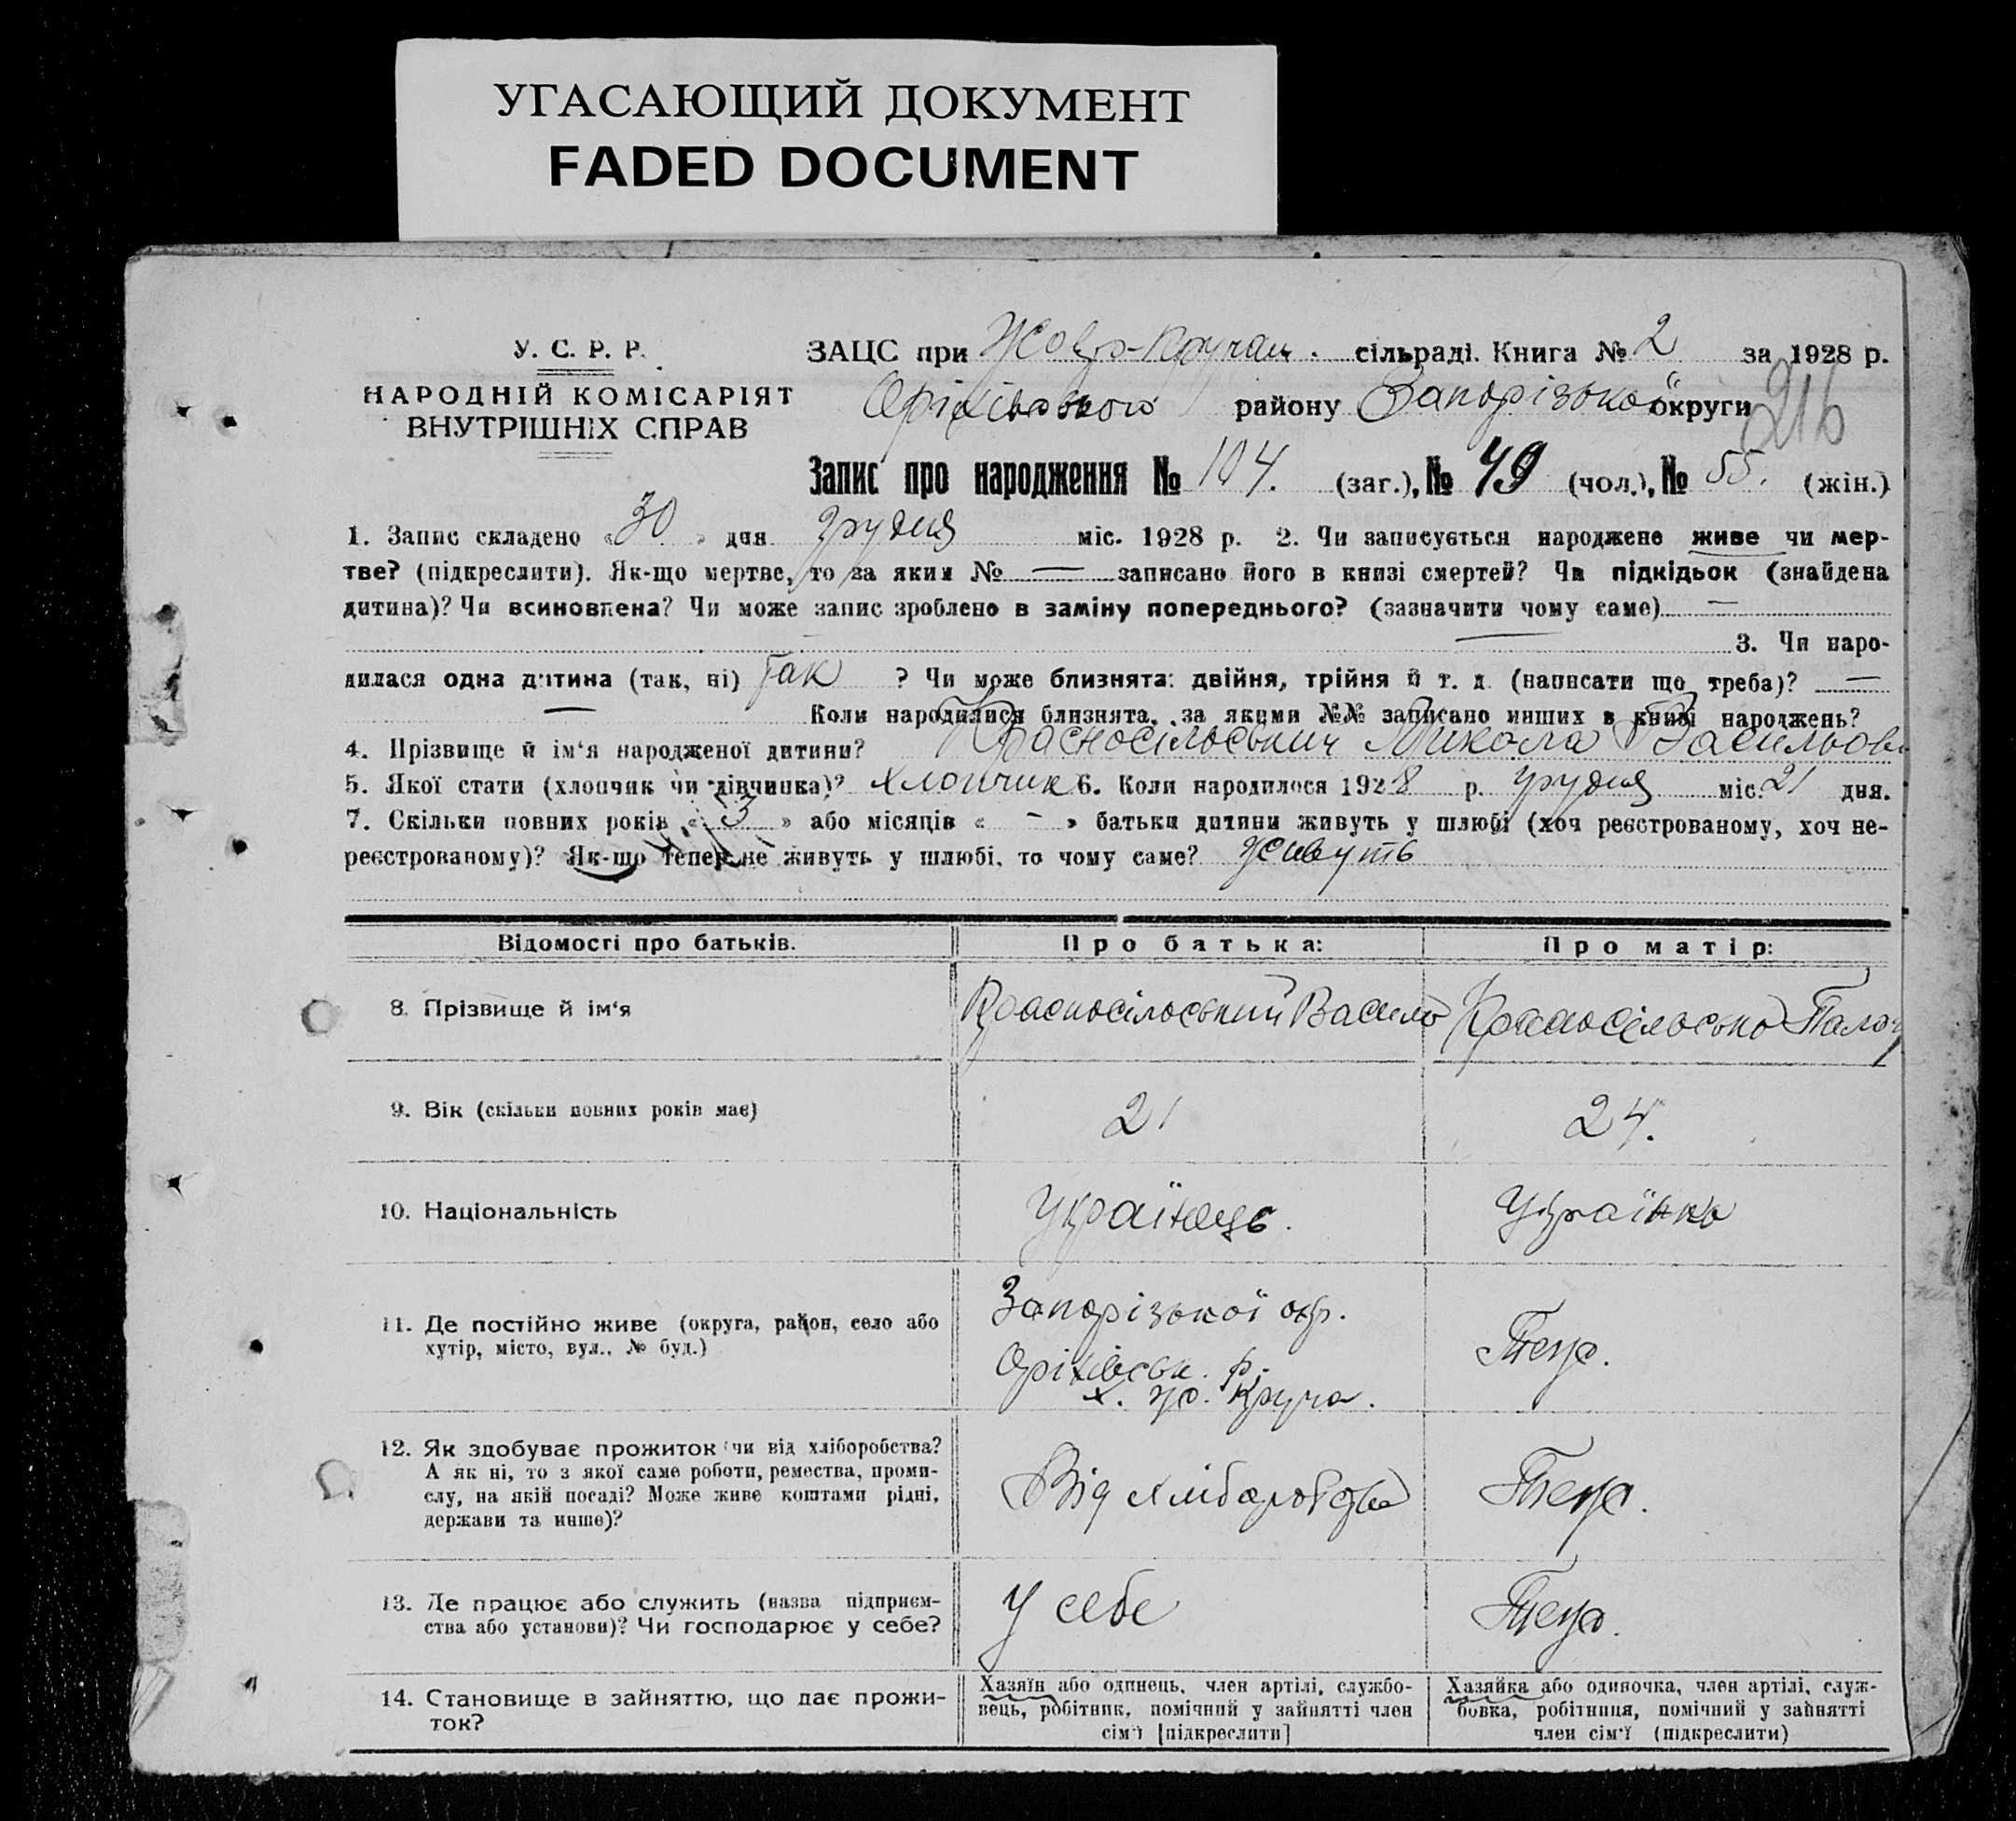 УГАСАЮЩИЙ ДОКУМЕНТ
FADED DOCUMENT
У. С. Р. Р.
НАРОДНІЙ КОМІСАРІЯТ
ВНУТРІШНІХ СПРАВ
ЗАЦС при Жовто-Кручан. сільраді. Книга № 2 за 1928 р.
Оріхівського району Запорізької округи
216
Запис про народження № 104. (заг.), № 49 (чол.), № 55. (жін.)
1. Запис складено « 30 » дня грудня міс. 1928 р. 2. Чи записується народжене живе чи мер-
тве? (підкреслити). Як-що мертве, то за яким № — записано його в книзі смертей? Чи підкідьок (знайдена
дитина)? Чи всиновлена? Чи може запис зроблено в заміну попереднього? (зазначити чому саме) —
— 3. Чи наро-
дилася одна дитина (так, ні) Так ? Чи може близнята: двійня, трійня й т. д. (написати що треба)? —
— Коли народилися близнята, за якими №№ записано инших в книзі народжень?
4. Прізвище й ім'я народженої дитини? Красносільський Микола Васильов
5. Якої стати (хлопчик чи дівчинка)? хлопчик 6. Коли народилося 1928 р. грудня міс. 21 дня.
7. Скільки повних років « 3 » або місяців « - » батьки дитини живуть у шлюбі (хоч реєстрованому, хоч не-
реєстрованому)? Як-що тепер не живуть у шлюбі, то чому саме? живуть
Відомості про батьків. Про батька: Про матір:
8. Прізвище й ім'я Красносільський Василь Красносільська
9. Вік (скільки повних років має) 21 24.
10. Національність Українець. Українка
11. Де постійно живе (округа, район, село або
хутір, місто, вул., № буд.)
Запорізької окр.
Оріхівськ. р.
х. Жо. Круча.
Теж.
12. Як здобуває прожиток чи від хліборобства?
А як ні, то з якої саме роботи, ремества, проми-
слу, на якій посаді? Може живе коштами рідні,
держави та инше)?
Від хліборобства
Теж.
13. Де працює або служить (назва підприєм-
ства або установи)? Чи господарює у себе?
У себе
Теж.
14. Становище в зайняттю, що дає прожи-
ток?
Хазяїн або одинець, член артілі, службо-
вець, робітник, помічний у зайнятті член
сім'ї [підкреслити]
Хазяйка або одиночка, член артілі, служ-
бовка, робітниця, помічний у зайнятті
член сім'ї (підкреслити)